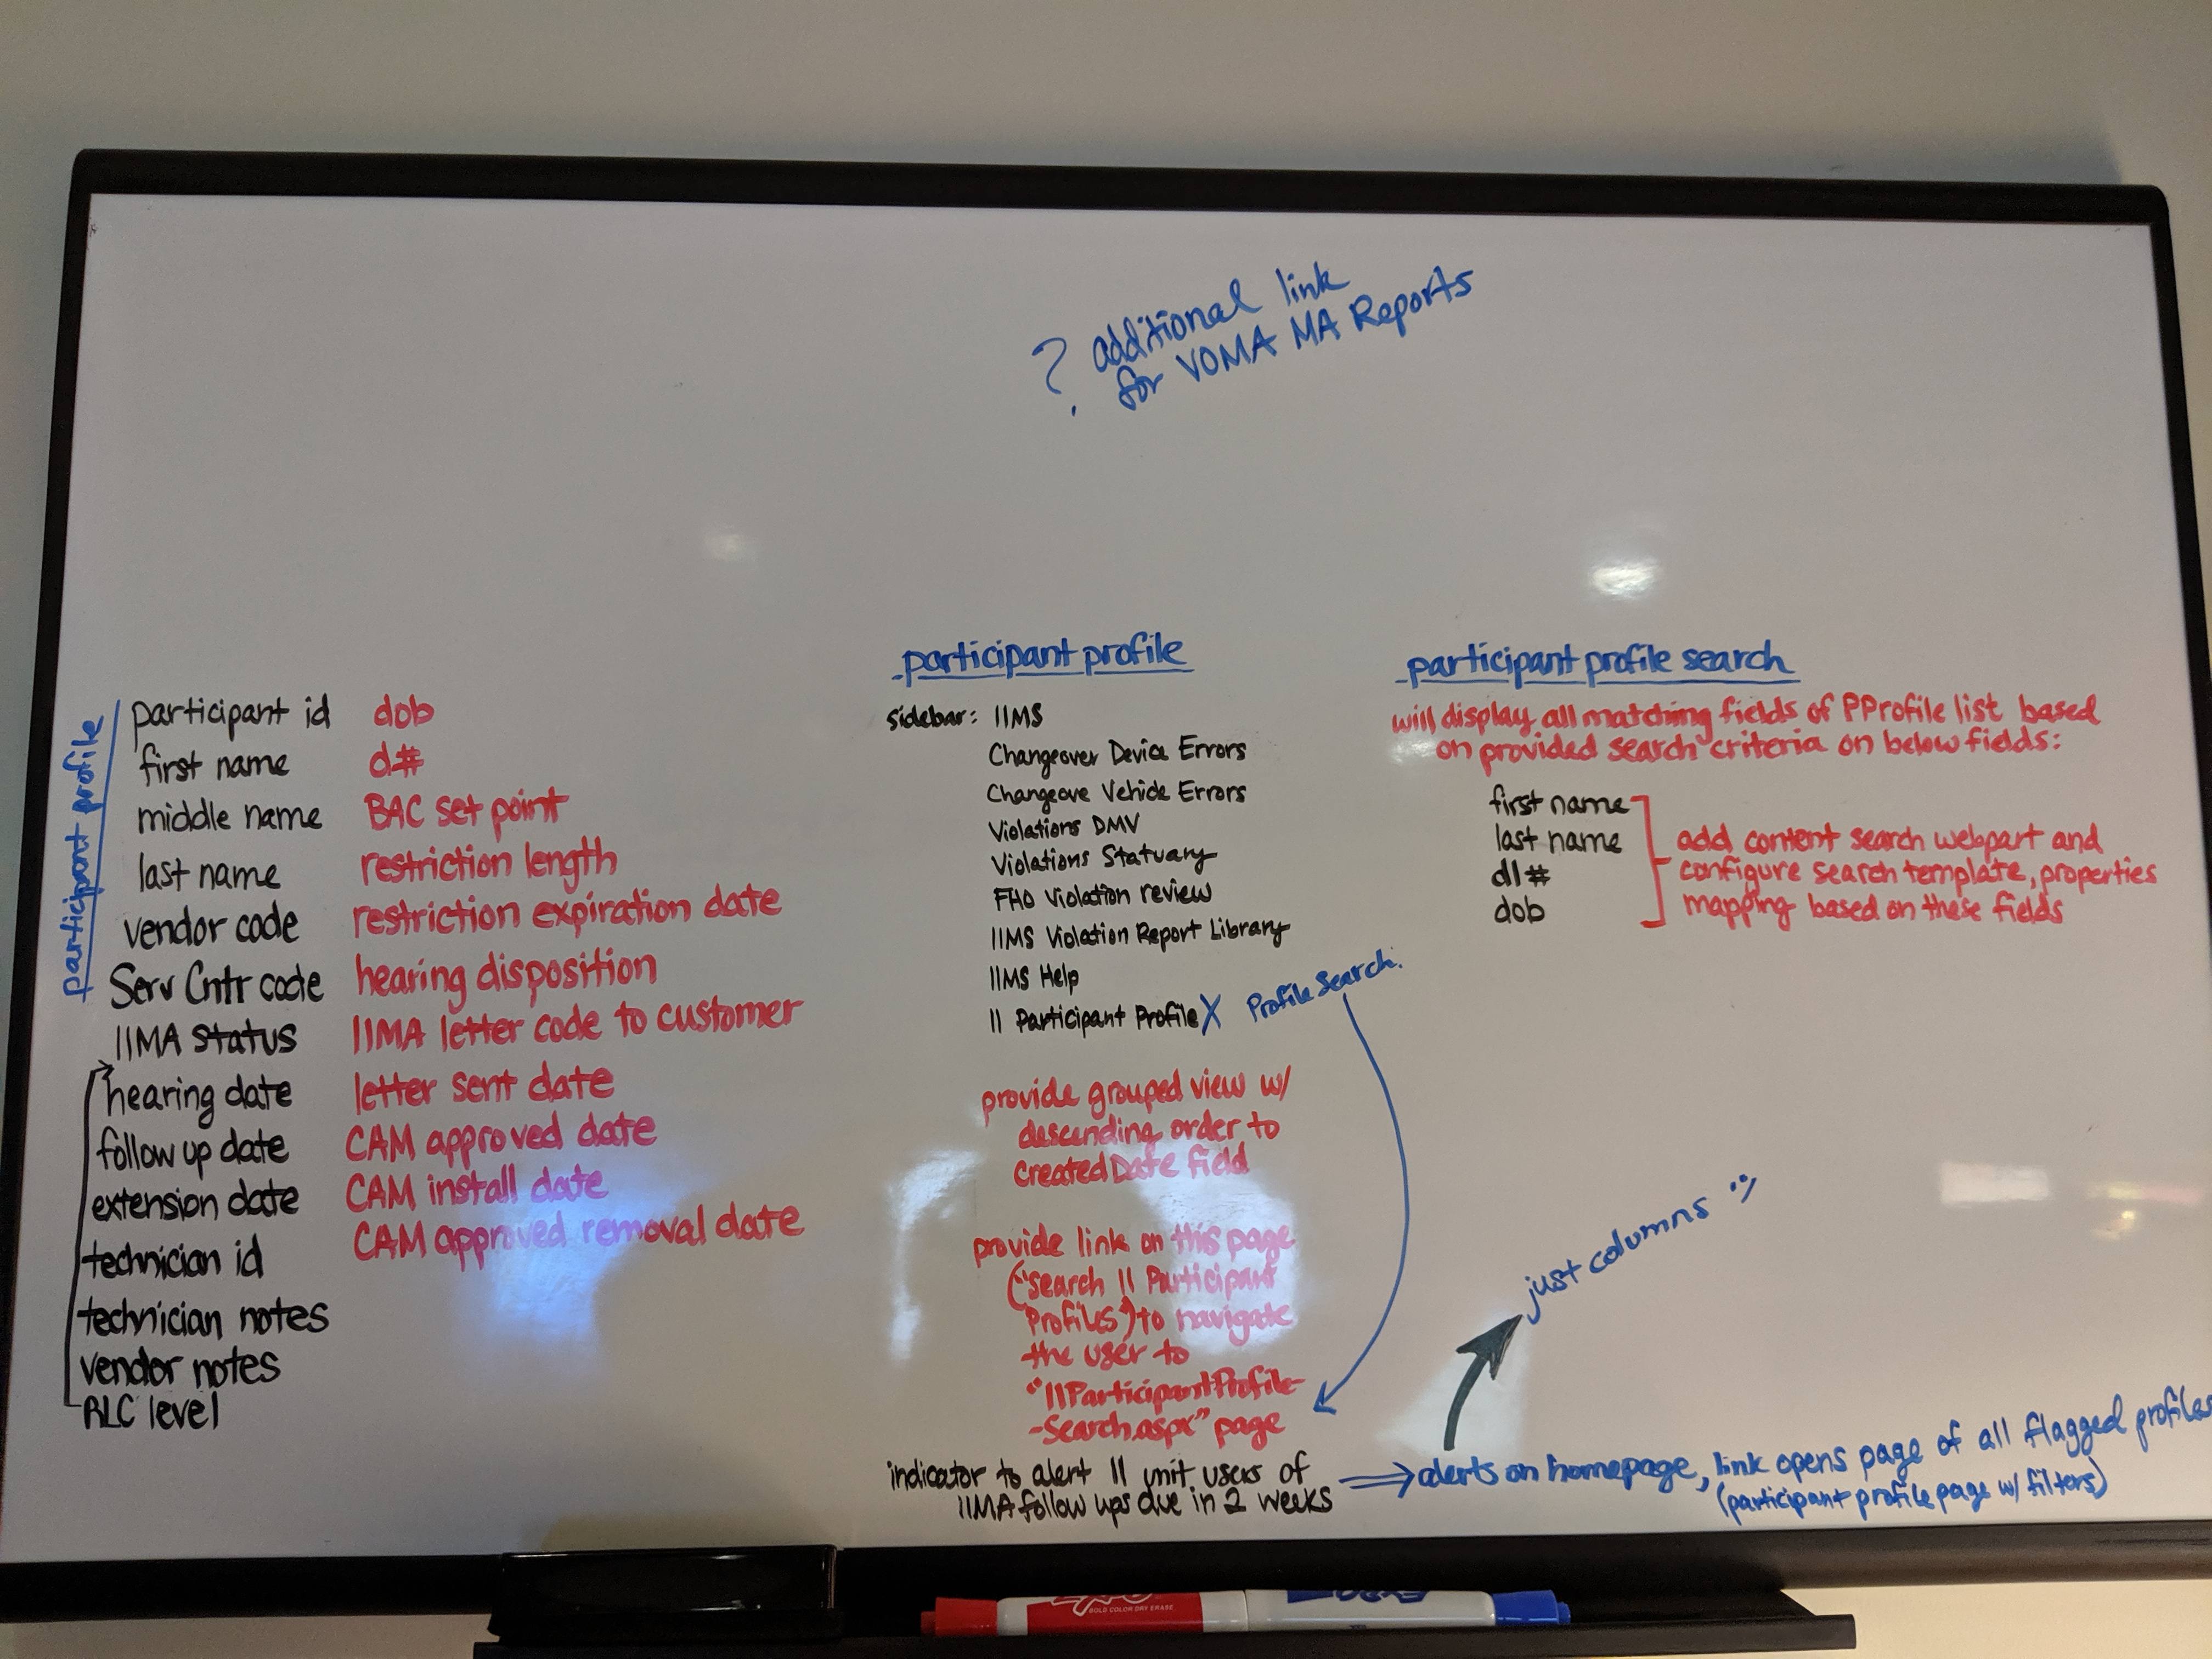 ? additional link
for VOMA MA Reports
participant profile
participant id
first name
middle name
last name
vendor code
Serv Cntr code
IIMA status
hearing date
follow up date
extension date
technician id
technician notes
vendor notes
RLC level
dob
d#
BAC set point
restriction length
restriction expiration date
hearing disposition
IIMA letter code to customer
letter sent date
CAM approved date
CAM install date
CAM approved removal date
participant profile
sidebar: IIMS
Changeover Device Errors
Changeove Vehicle Errors
Violations DMV
Violations Statuary
FHO Violation review
IIMS Violation Report Library
IIMS Help
II Participant Profile X Profile Search.
provide grouped view w/
descending order to
CreatedDate field
provide link on this page
("search II Participant
Profiles") to navigate
the user to
"IIParticipantProfile-
-Search.aspx" page
indicator to alert II unit users of
IIMA follow ups due in 2 weeks
participant profile search
will display all matching fields of PProfile list based
on provided search criteria on below fields:
first name
last name
dl#
dob
add content search webpart and
configure search template, properties
mapping based on these fields
just columns :)
alerts on homepage, link opens page of all flagged profiles
(participant profile page w/ filters)
BOLD COLOR DRY ERASE